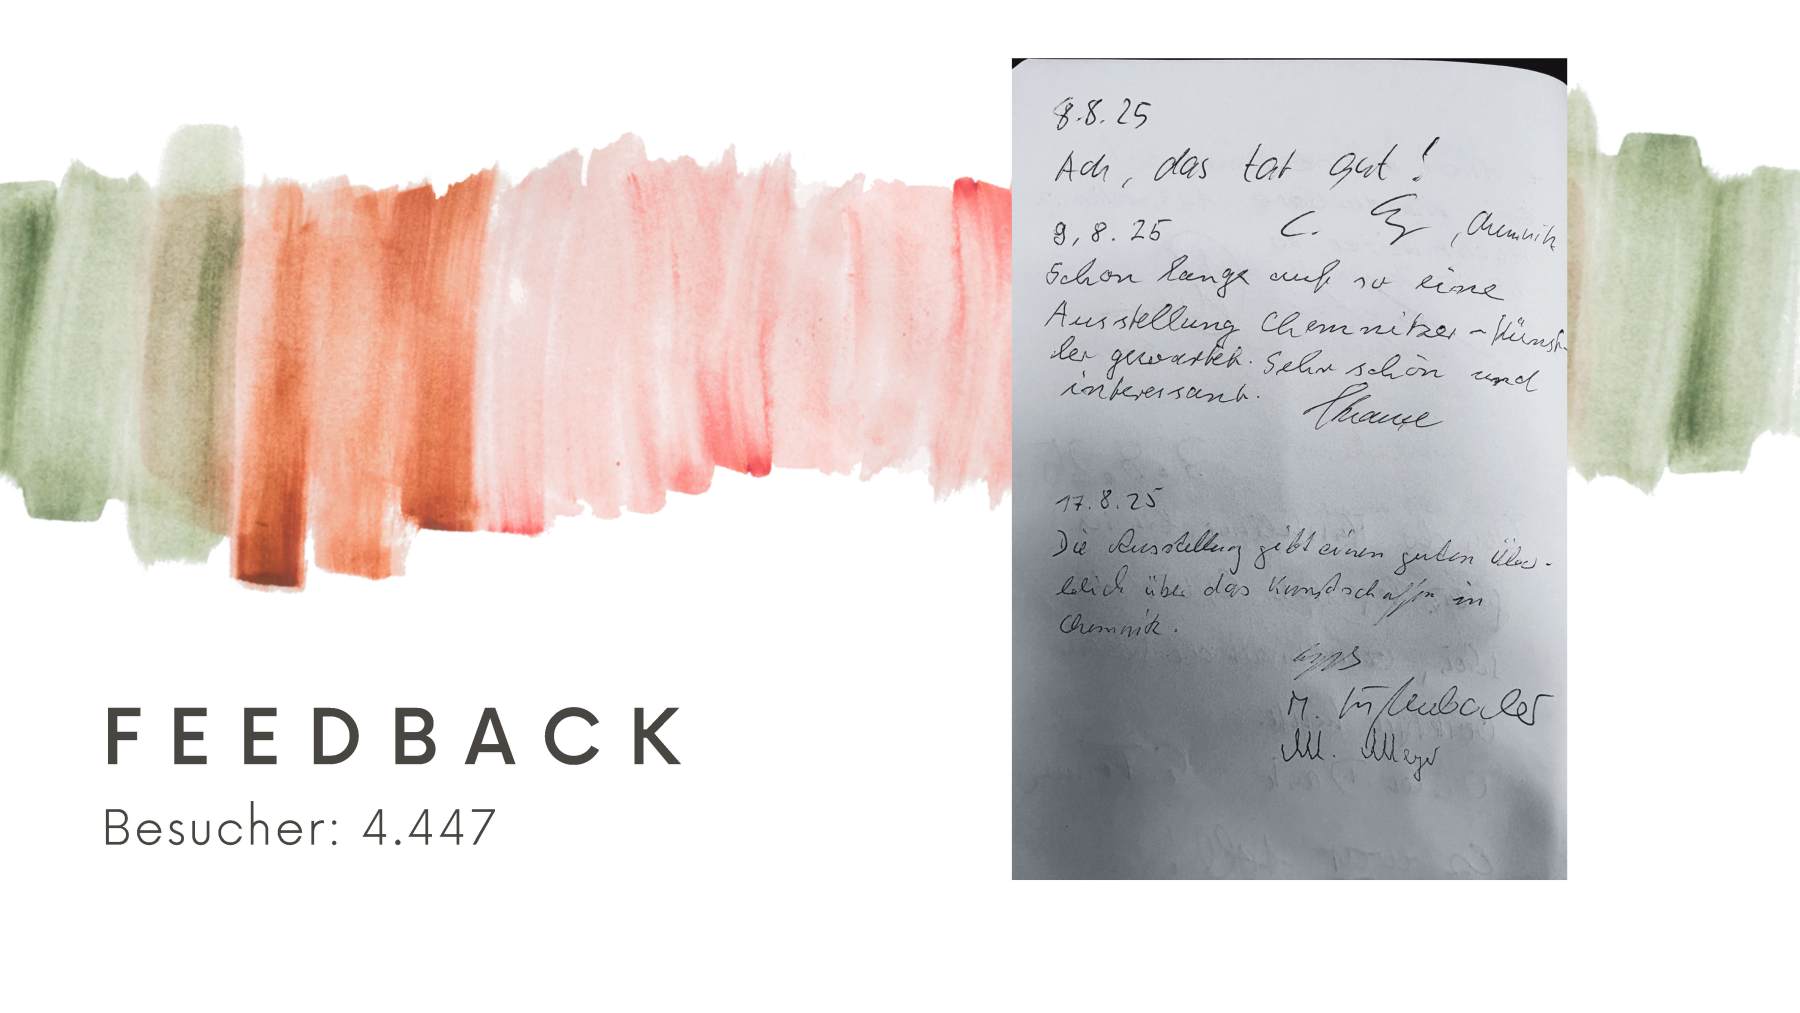 FEEDBACK
Besucher: 4.447
8.8.25
Ach, das tat gut!
C. , Chemnitz
9.8.25
Schon lange auf so eine
Ausstellung Chemnitzer-Künst-
ler gewartet. Sehr schön und
interessant.
17.8.25
Die Ausstellung gibt einen guten Über-
blick über das Kunstschaffen in
Chemnitz.
M.
M. Meyer